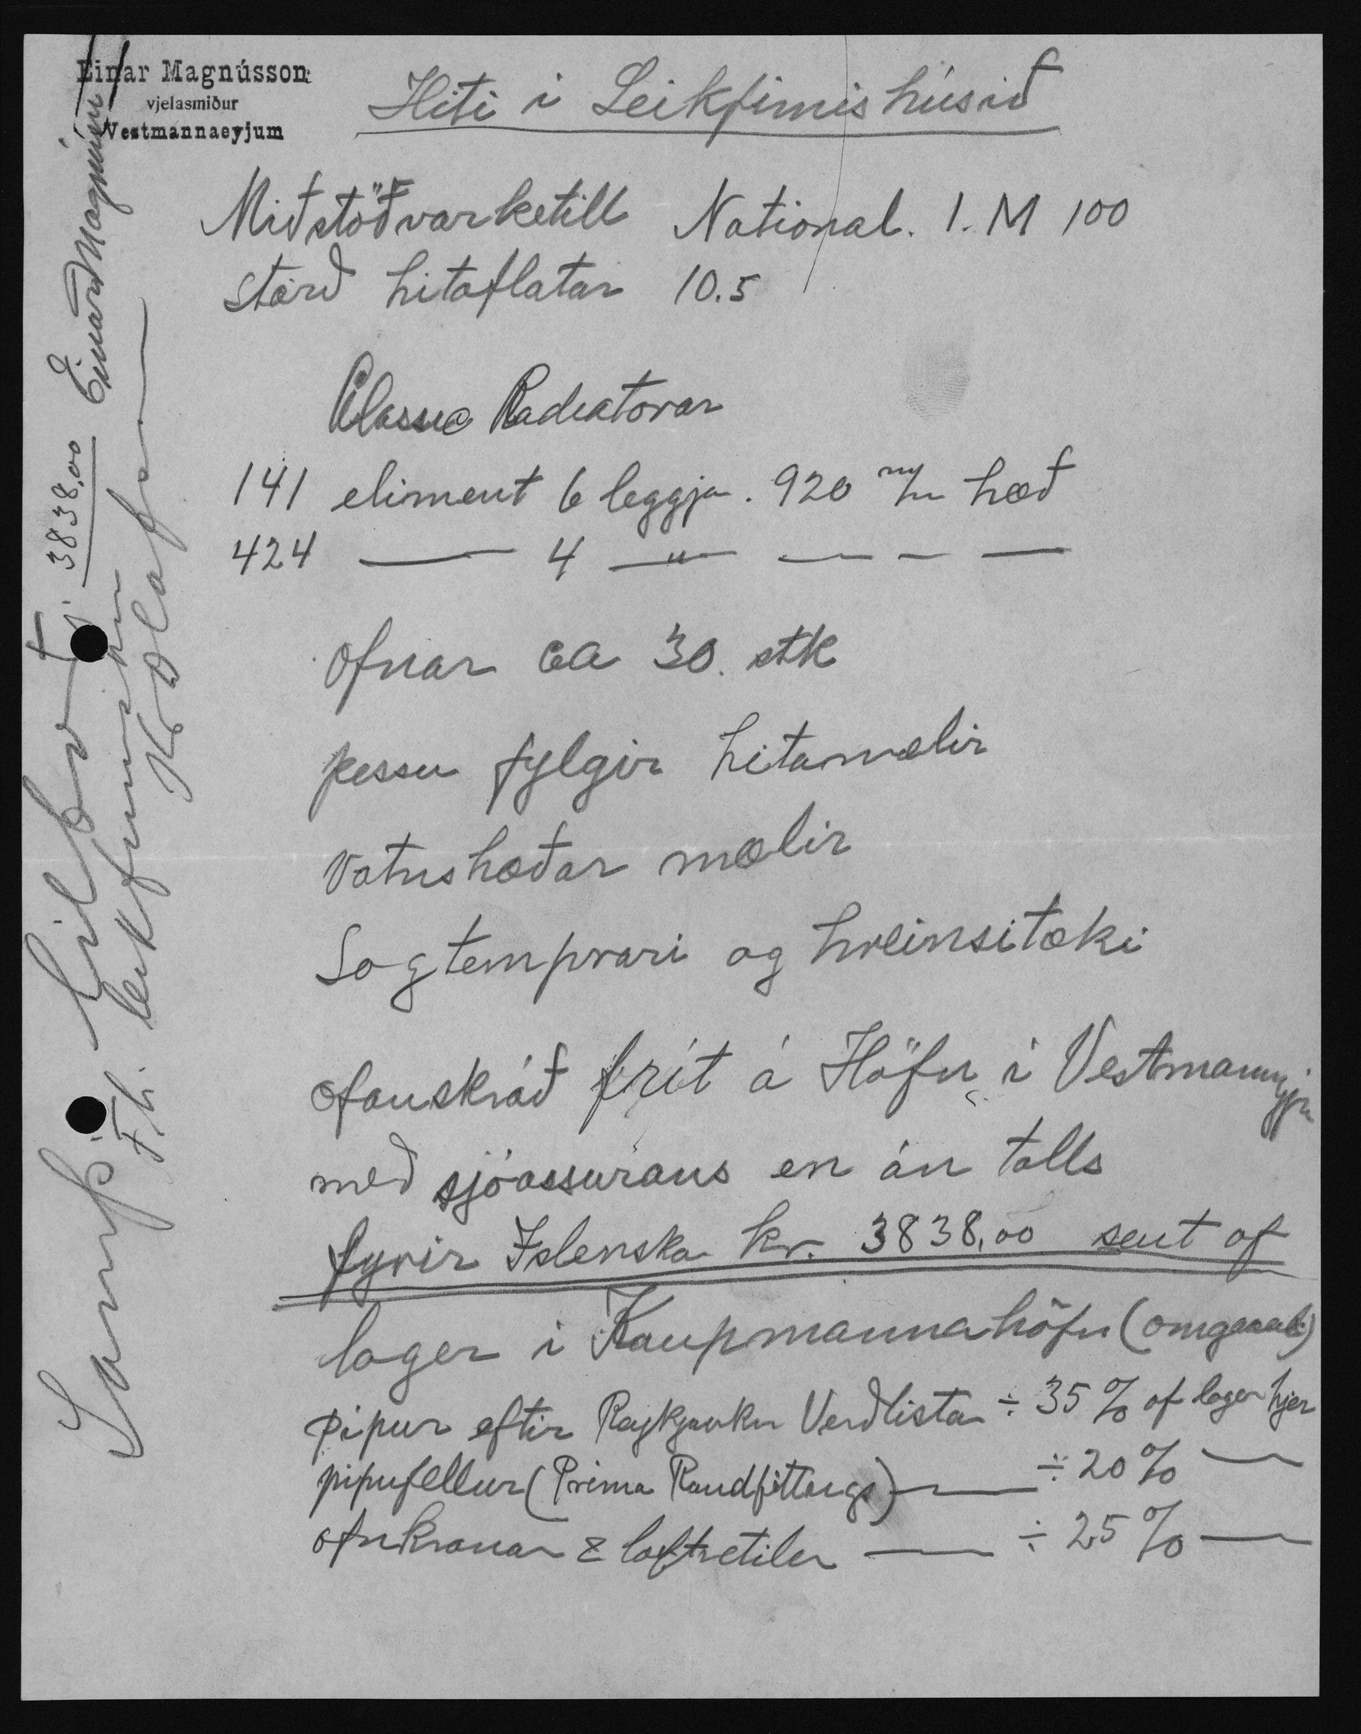 Einar Magnússon
vjelasmiður
Vestmannaeyjum
Hiti í Leikfimishúsið
Miðstöðvarketill National. 1. M 100
stærð hitaflatar 10.5
Classic Radiatorar
141 eliment 6 leggja. 920 m/m hæð
424 — 4 —"— — — —
Ofnar ca 30. stk
þessu fylgir hitamælir
Vatnshæðar mælir
Sogtemprari og hreinsitæki
ofanskráð frít á Höfn í Vestmannyju
með sjóassurans en án tolls
fyrir Islenska kr. 3838,00 sent af
lager í Kaupmannahöfn (omgaaende)
pípur eftir Reykjavíkur Verðlista ÷ 35 % af lager hjer
pípufellur (Prima Randfittings) — ÷ 20 % —
ofnkranar & loftvetiler — ÷ 25 % —
Samþ. tilboð
3838,00 Einar Magnússon
f.h. leikfimishúss
Ólafsson